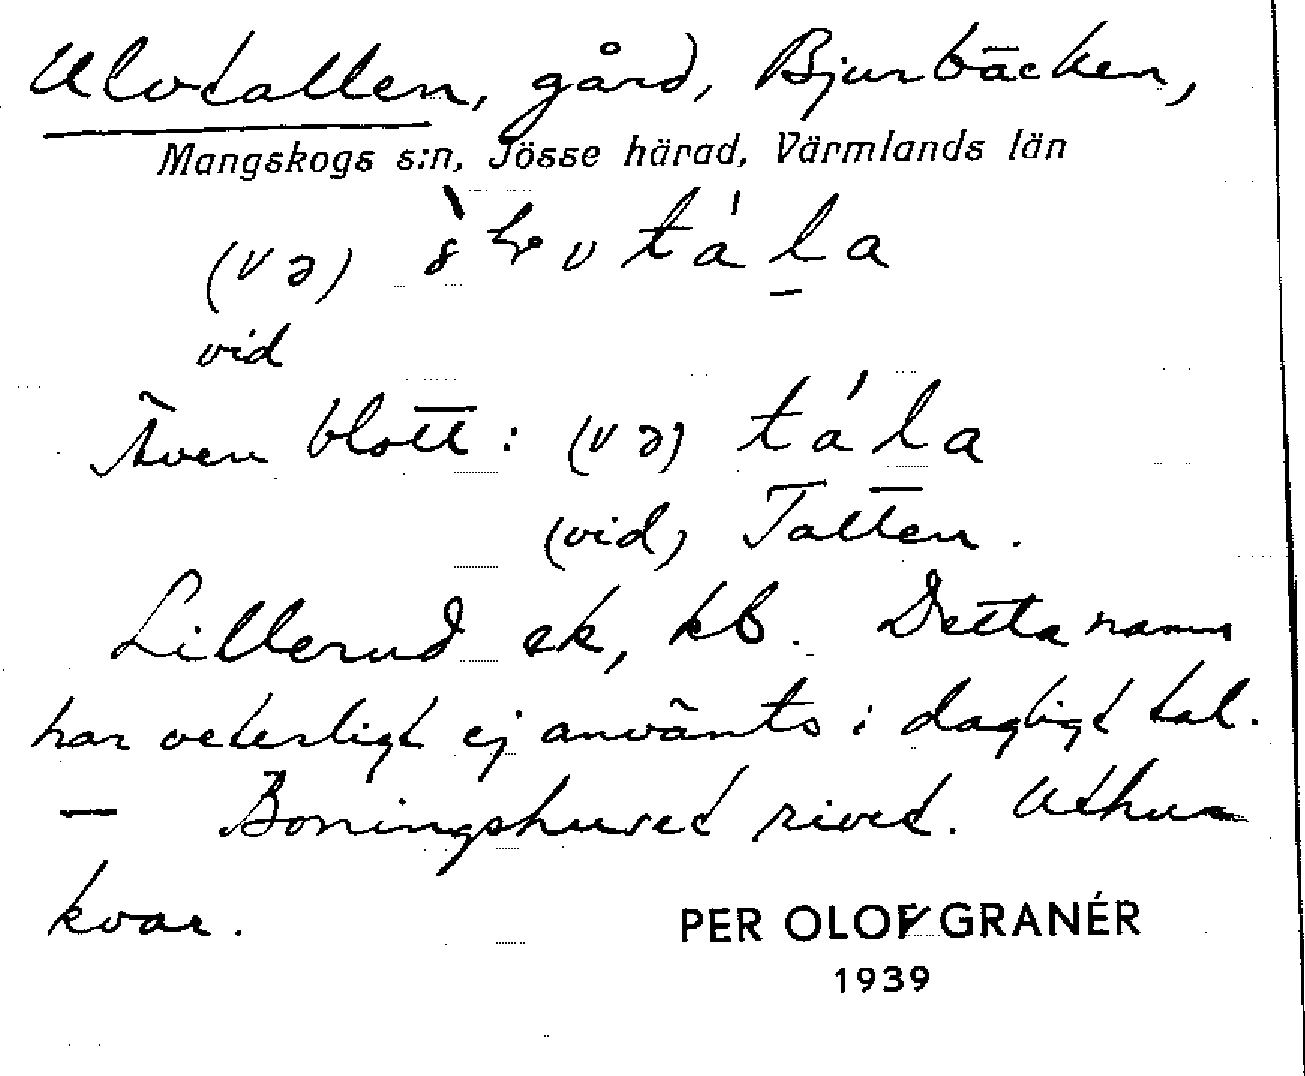 Ulvtallen, gård, Bjurbäcken,
Mangskogs s:n, Jösse härad, Värmlands län
(və)
vid
Även blott: (və) tála
(vid) Tallen.
Lillerud ek, kb. Detta namn
har veterligt ej använts i dagligt tal.
— Boningshuset rivet. Uthus
kvar.
PER OLOF GRANÉR
1939